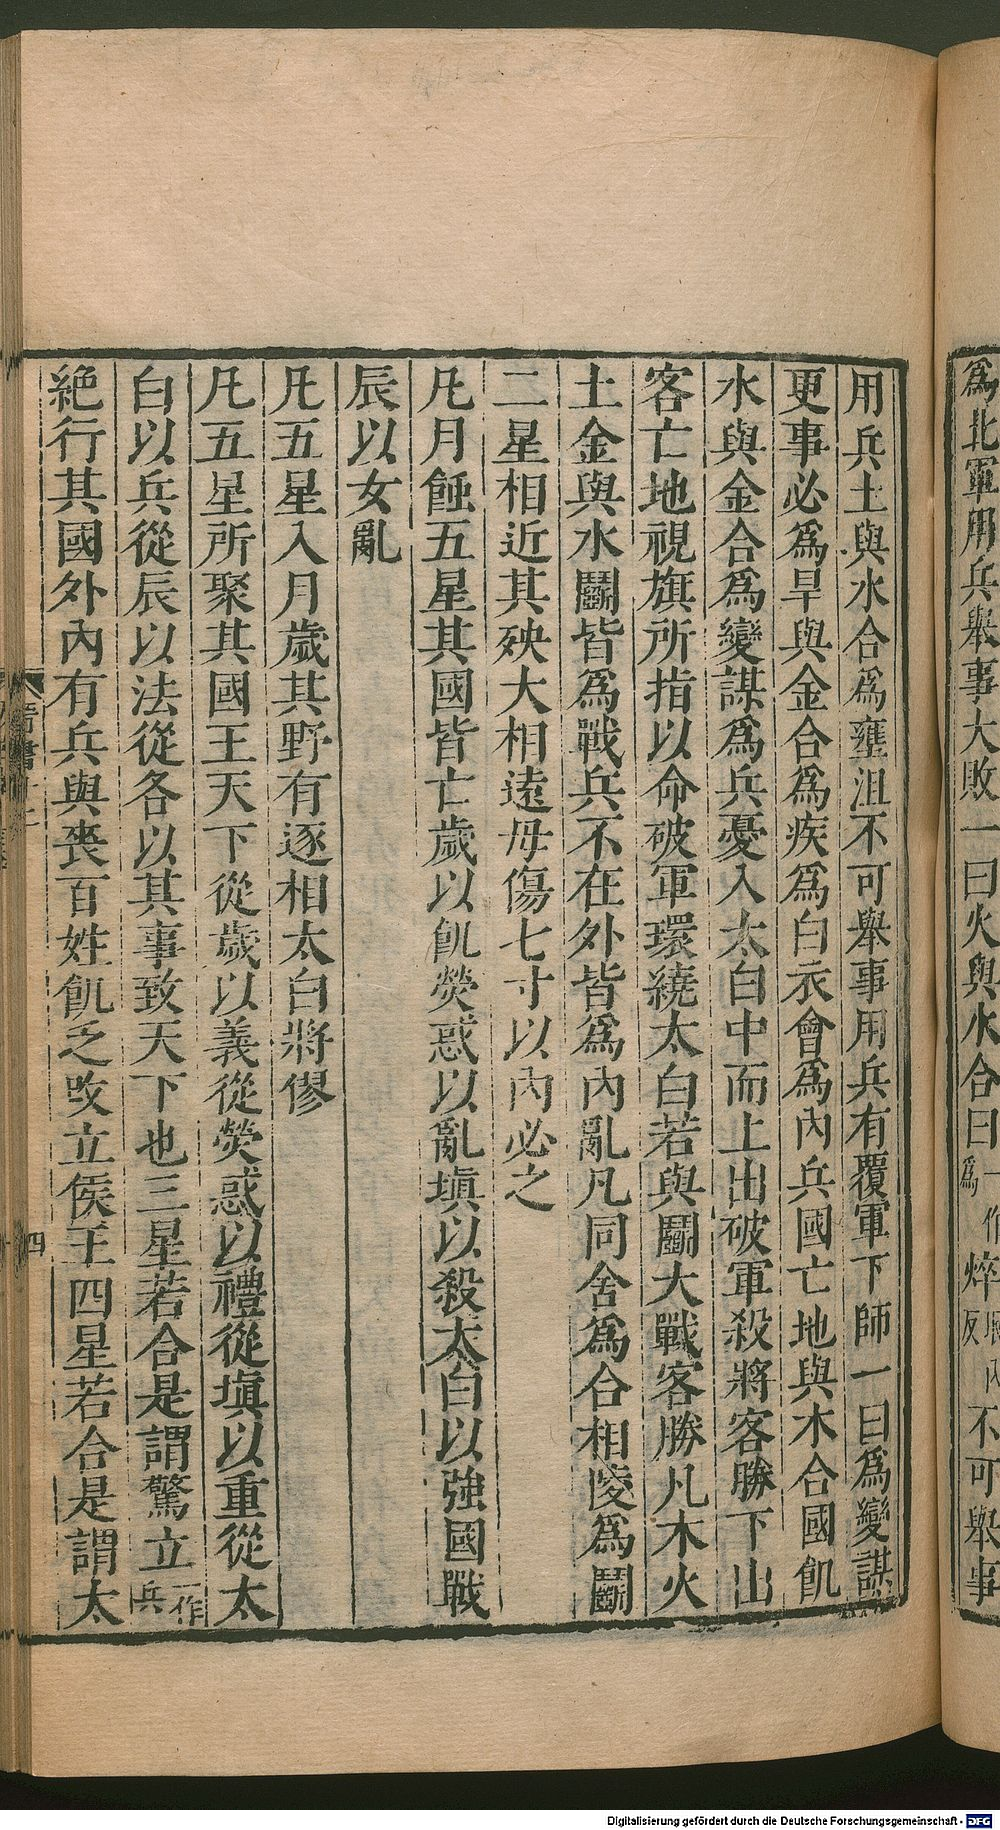 爲北軍用兵舉事大敗一曰火與水合曰一作爲焠不可舉事
用兵土與水合爲壅沮不可舉事用兵有覆軍下師一曰爲變謀
更事必爲旱與金合爲疾爲白衣會爲內兵國亡地與木合國飢
水與金合爲變謀爲兵憂入太白中而上出破軍殺將客勝下出
客亡地視旗所指以命破軍環繞太白若與鬭大戰客勝凡木火
土金與水鬭皆爲戰兵不在外皆爲內亂凡同舍爲合相陵爲鬭
二星相近其殃大相遠毋傷七寸以內必之
凡月蝕五星其國皆亡歲以飢熒惑以亂塡以殺太白以強國戰
辰以女亂
凡五星入月歲其野有逐相太白將僇
凡五星所聚其國王天下從歲以義從熒惑以禮從塡以重從太
白以兵從辰以法從各以其事致天下也三星若合是謂驚立一作兵
絕行其國外內有兵與喪百姓飢乏改立侯王四星若合是謂太
晉書十二
四
Digitalisierung gefördert durch die Deutsche Forschungsgemeinschaft - DFG